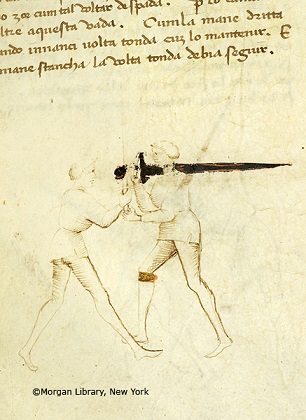 zoe cum tal voltar de spada. p lo cam
altre aquesta vada. Cum la mane dritta
ando innanci volta tonda cuz lo mantenir. E
mane stancha la volta tonda debia seguir.
©Morgan Library, New York